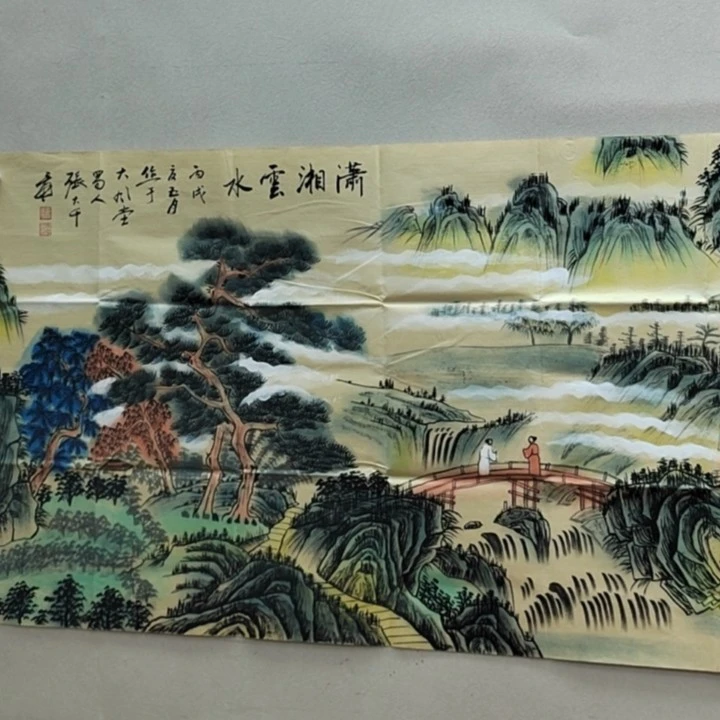 瀟湘雲水
丙戌
夏五月
作于
大风堂
蜀人
張大千
爰